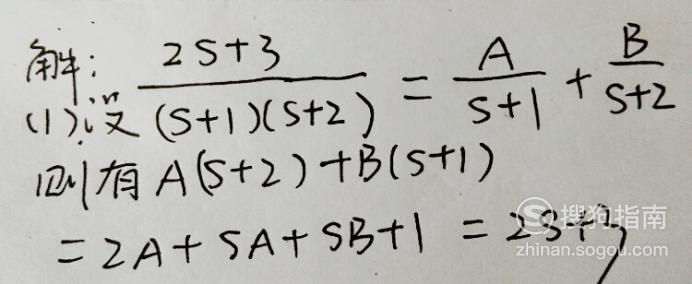 解: (2S+3)/((S+1)(S+2)) = A/(S+1) + B/(S+2)
(1)设
则有 A(S+2)+B(S+1)
= 2A+SA+SB+1 = 2S+3
搜狗指南
zhinan.sogou.com